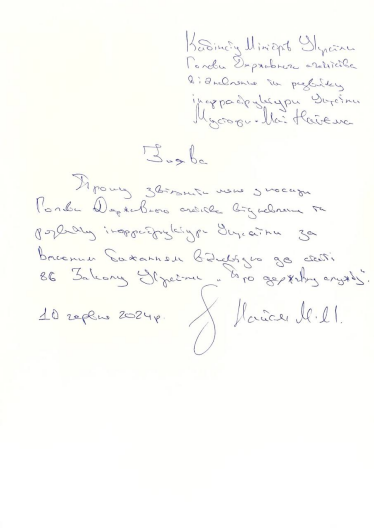 Кабінету Міністрів України
Голови Державного агентства
відновлення та розвитку
інфраструктури України
Мустафи-Масі Найєма
Заява
Прошу звільнити мене з посади
Голови Державного агентства відновлення та
розвитку інфраструктури України за
власним бажанням відповідно до статті
86 Закону України „Про державну службу".
10 червня 2024р.
Найєм М.-М.